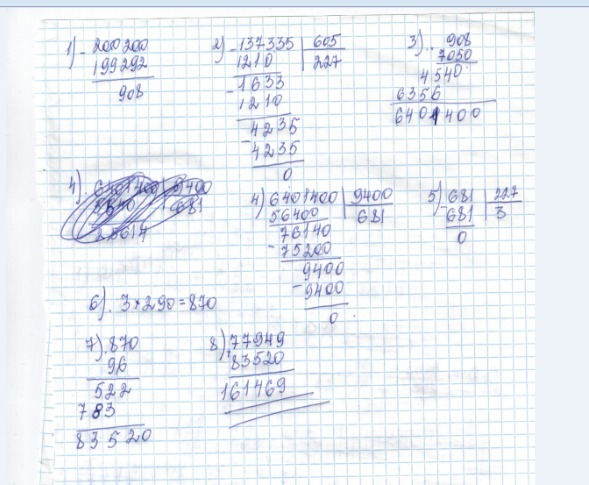 1) - 200200
199292
908
2) - 137335 | 605
1210 | 227
- 1633
1210
- 4235
4235
0
3) . 908
7050
4540
6356
6401400
4) . 6401400 | 9400
5640 | 681
4) 6401400 | 9400
56400 | 681
76140
- 75200
9400
- 9400
0
5) - 681 | 227
681 | 3
0
6). 3 × 290 = 870
7) . 870
96
522
783
83520
8) + 77949
83520
161469